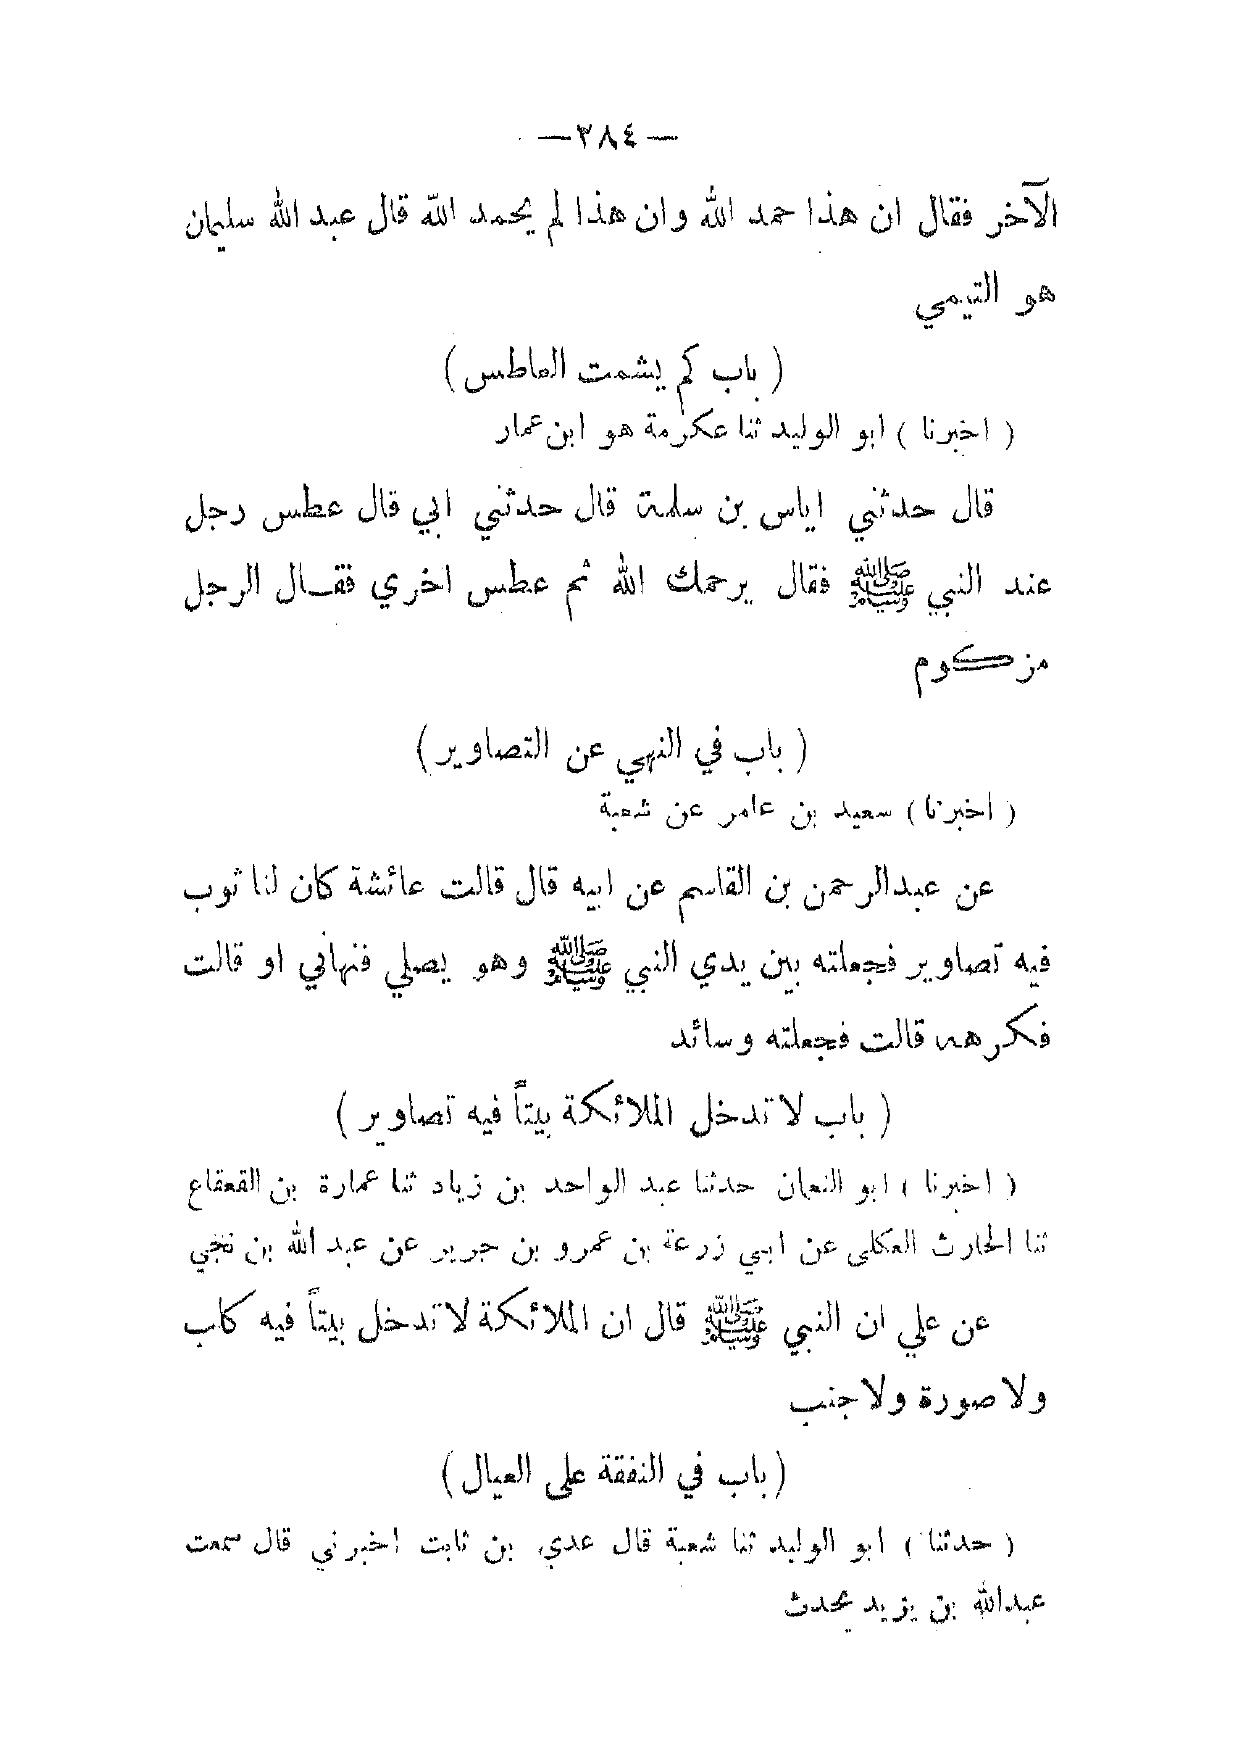 —٢٨٤—
الآخر فقال ان هذا حمد الله وان هذا لم يحمد الله قال عبد الله سليمان
هو التيمي
( باب كم يشمت العاطس )
( اخبرنا ) ابو الوليد ثنا عكرمة هو ابن عمار
قال حدثني اياس بن سلمة قال حدثني ابي قال عطس رجل
عند النبي ﷺ فقال يرحمك الله ثم عطس اخري فقال الرجل
مزكوم
( باب في النهي عن التصاوير )
( اخبرنا ) سعيد بن عامر عن شعبة
عن عبدالرحمن بن القاسم عن ابيه قال قالت عائشة كان لنا ثوب
فيه تصاوير فجعلته بين يدي النبي ﷺ وهو يصلي فنهاني او قالت
فكرهه قالت فجعلته وسائد
( باب لا تدخل الملائكة بيتاً فيه تصاوير )
( اخبرنا ) ابو النعمان حدثنا عبد الواحد بن زياد ثنا عمارة بن القعقاع
ثنا الحارث العكلى عن ابي زرعة بن عمرو بن جرير عن عبد الله بن نجي
عن علي ان النبي ﷺ قال ان الملائكة لا تدخل بيتاً فيه كلب
ولا صورة ولا جنب
( باب في النفقة على العيال )
( حدثنا ) ابو الوليد ثنا شعبة قال عدي بن ثابت اخبرني قال سمعت
عبدالله بن يزيد يحدث